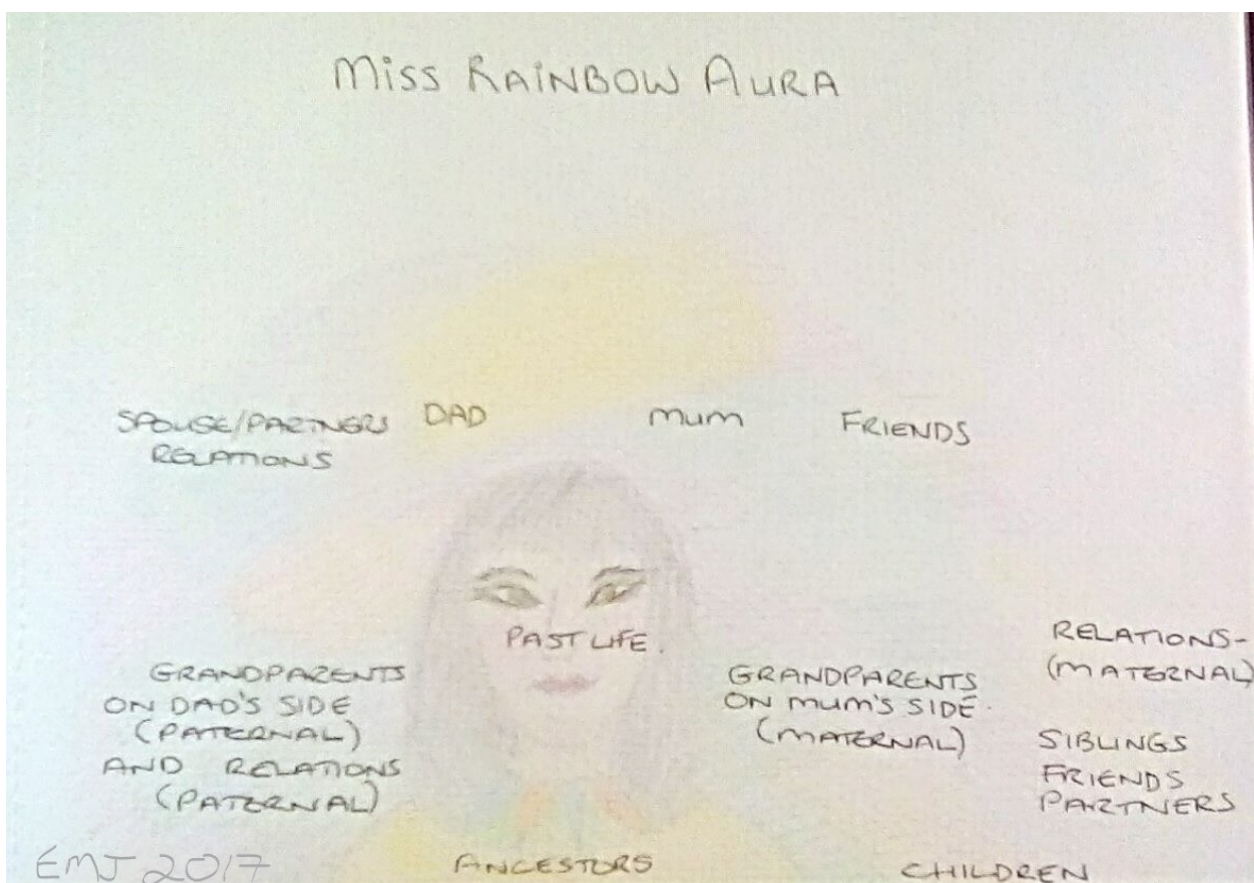 Miss RAINBOW AURA
SPOUSE/PARTNERS
RELATIONS
DAD
mum
FRIENDS
PAST LIFE.
GRANDPARENTS
ON DAD'S SIDE
(PATERNAL)
AND RELATIONS
(PATERNAL)
GRANDPARENTS
ON mum'S SIDE.
(MATERNAL)
RELATIONS-
(MATERNAL)
SIBLINGS
FRIENDS
PARTNERS
EMJ 2017
ANCESTORS
CHILDREN